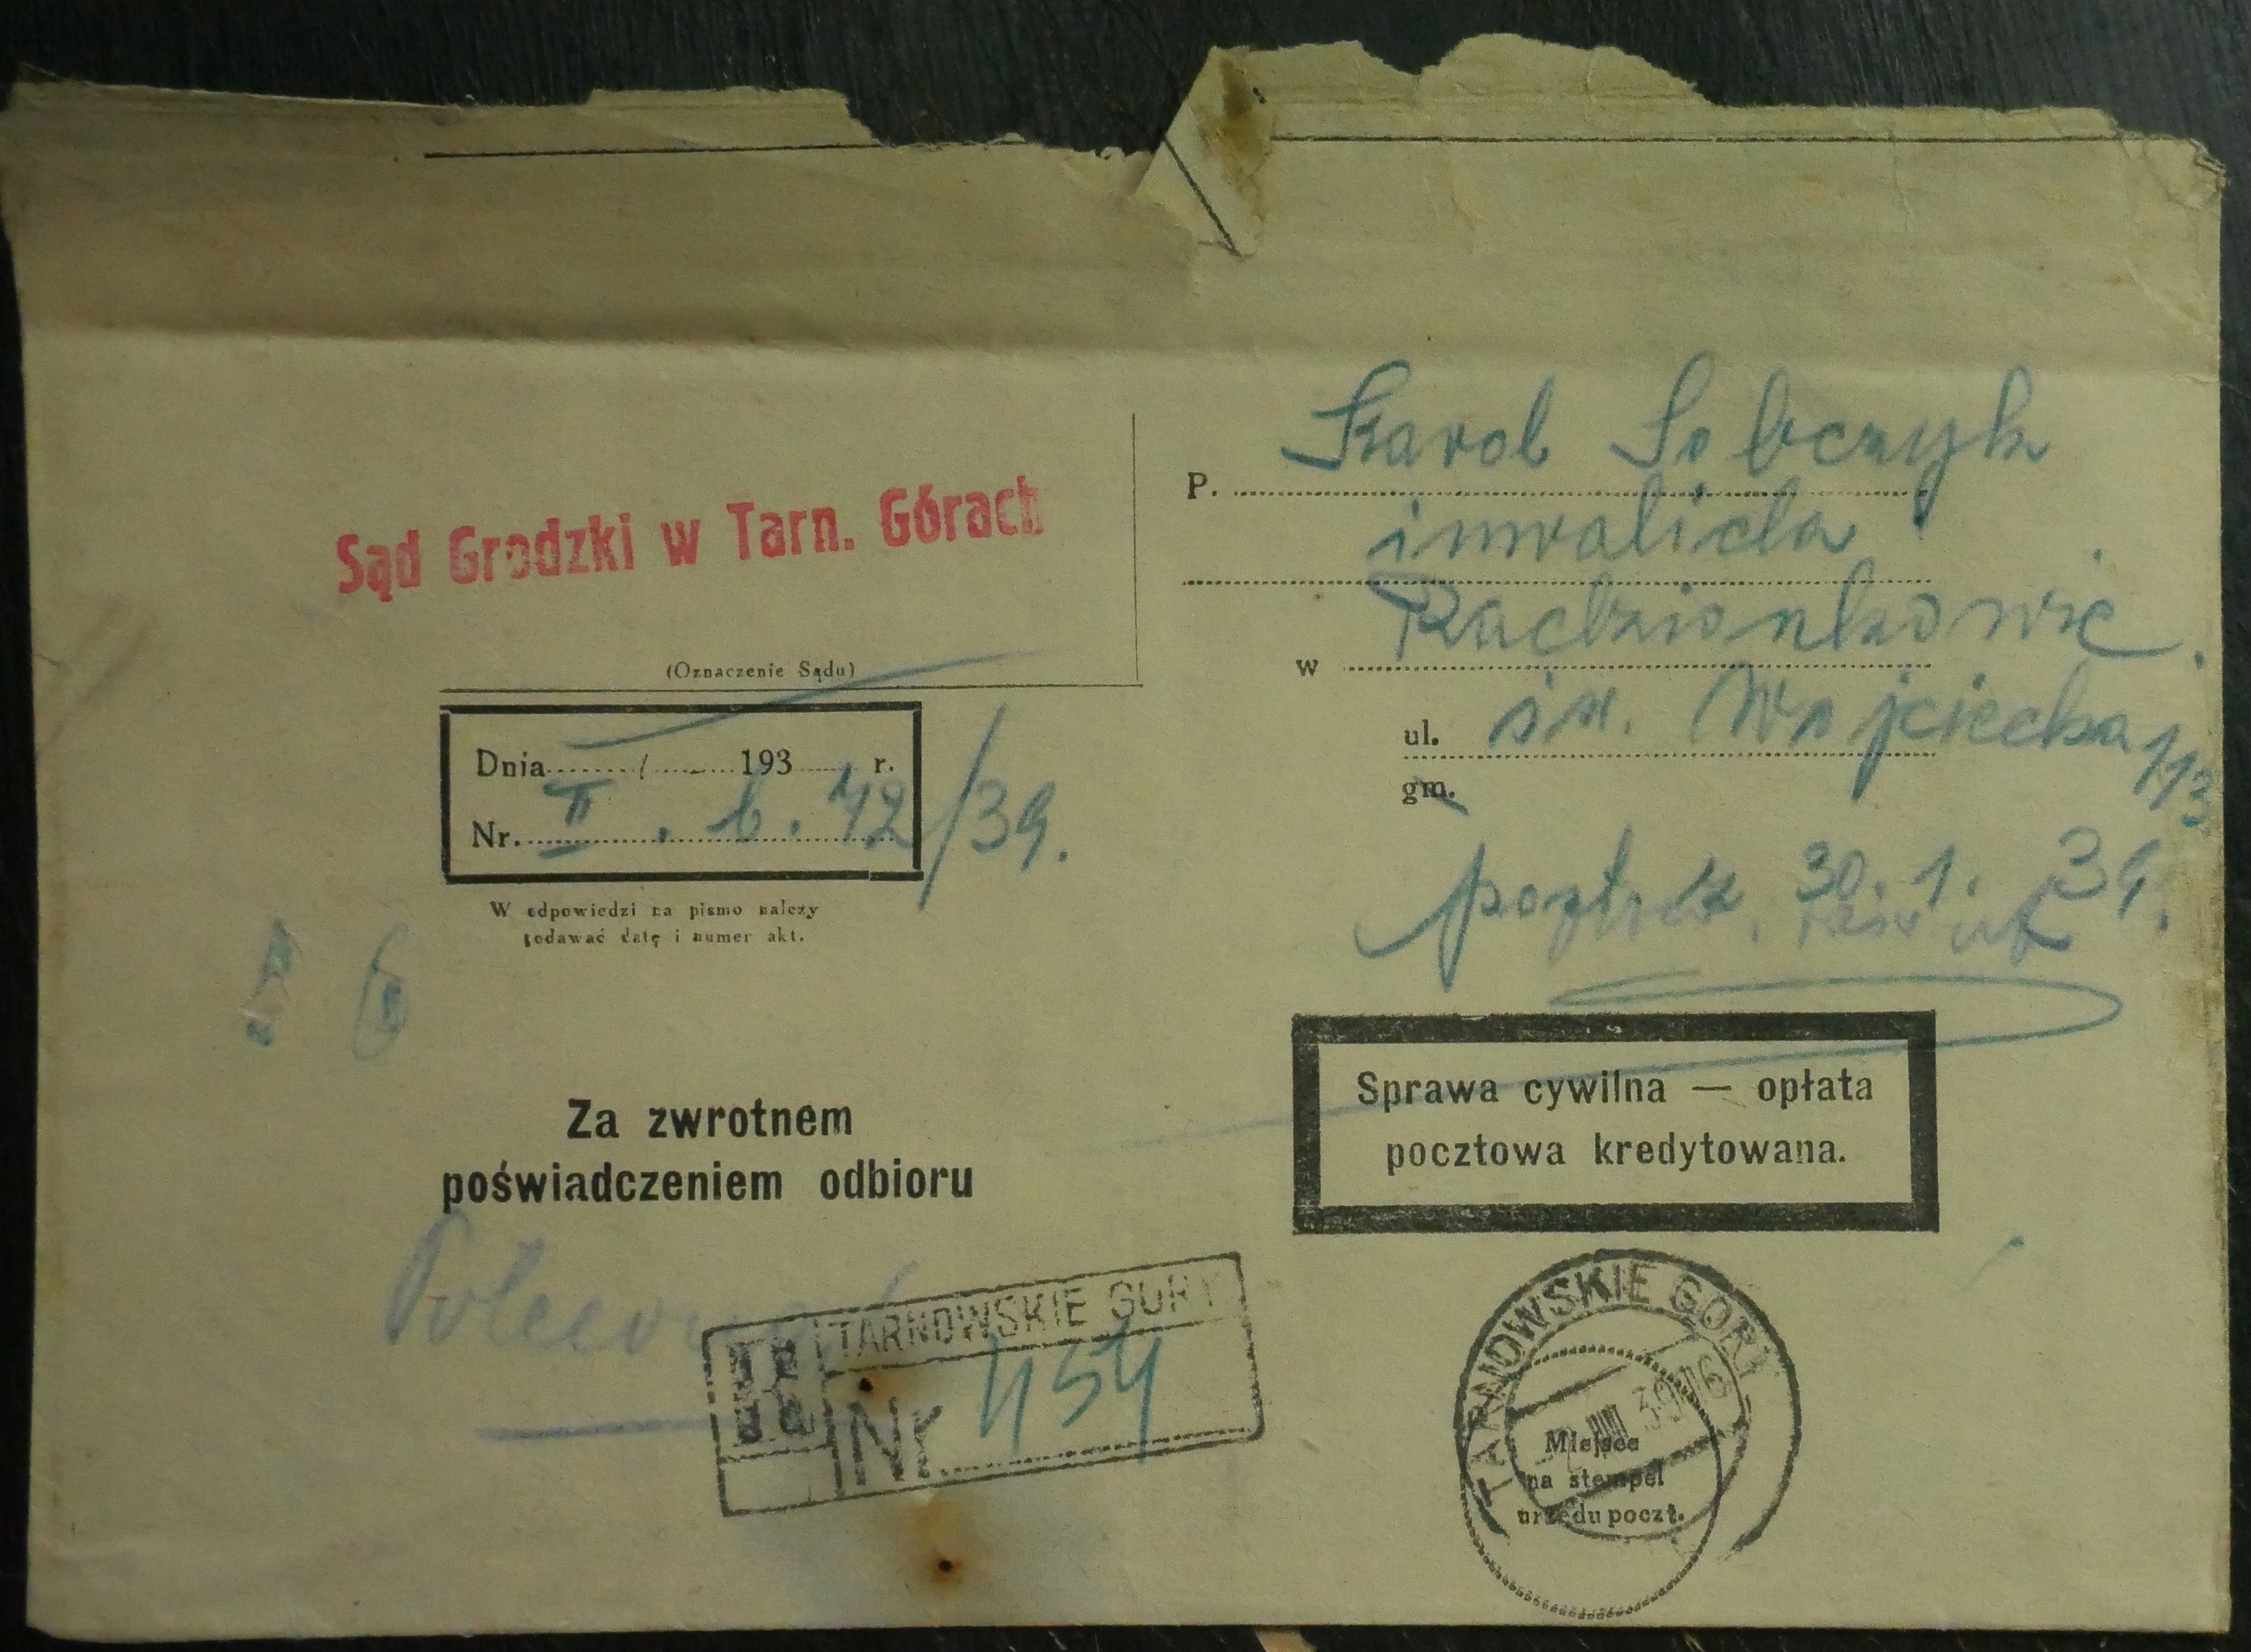 Sąd Grodzki w Tarn. Górach
(Oznaczenie Sądu)
Dnia / 193 r.
Nr. II. b. 42/39.
W odpowiedzi na pismo należy
podawać datę i numer akt.
Za zwrotnem
poświadczeniem odbioru
P. Karol Sobczyk
inwalida
w Radzionkowie.
ul. św. Wojciecha 113
gm.
30. 1. 39.
Sprawa cywilna — opłata
pocztowa kredytowana.
R TARNOWSKIE GÓRY
Nr. 454
TARNOWSKIE GÓRY
39 16
Miejsce
na stempel
urzędu poczt.